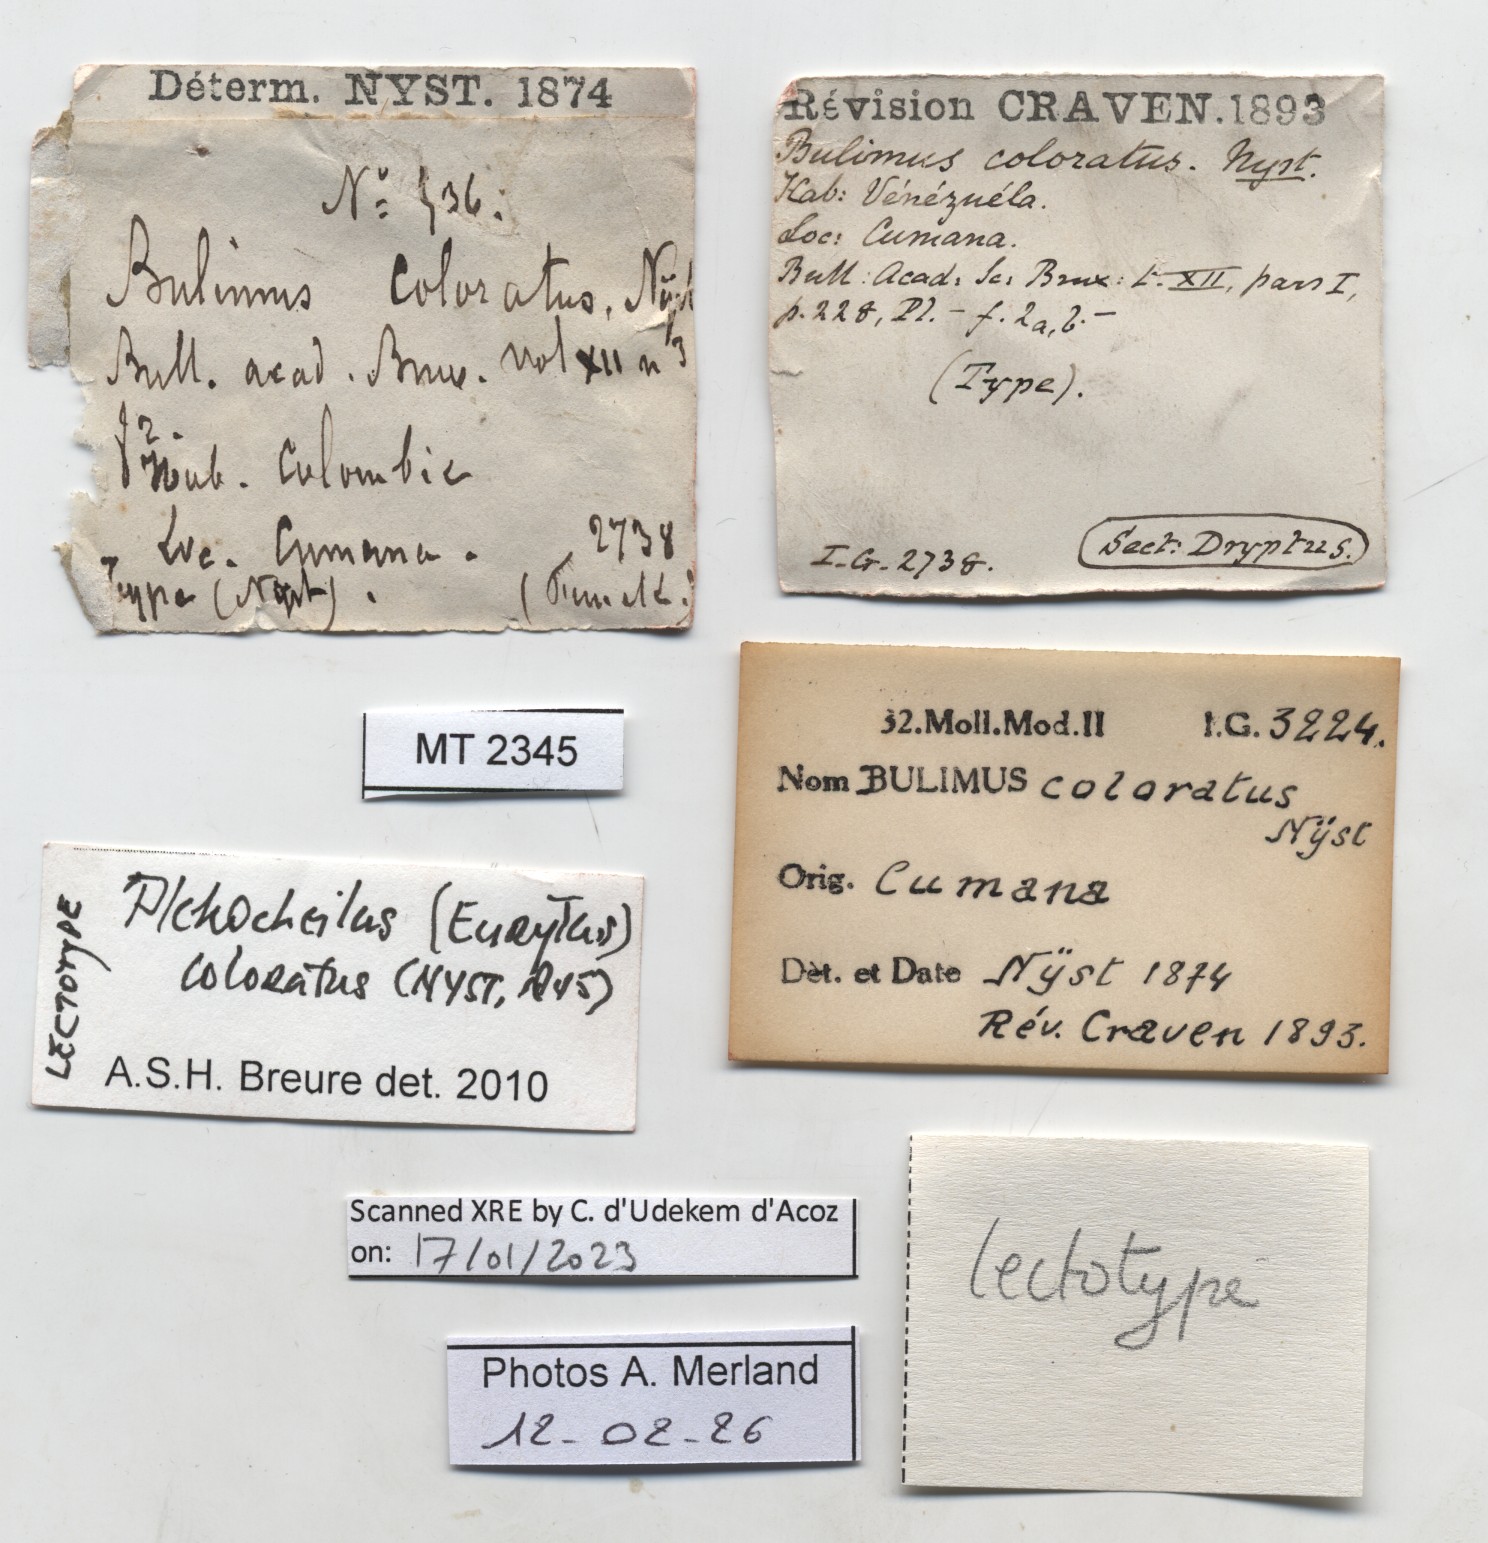 Déterm. NYST. 1874
Nº 436.
Bulimus coloratus, Nyst
Bull. acad. Brux. vol XII n 3
f 2.
Hab. Colombie
Loc. Cumana. 2738
Type (Nyst). (Funck.)
Révision CRAVEN.1893
Bulimus coloratus. Nyst.
Hab: Vénézuéla.
Loc: Cumana.
Bull: Acad: Sc: Brux: t. XII, pars I,
p. 228, Pl. - f. 2a, b. -
(Type).
I.G. 2738.
Sect: Dryptus.
MT 2345
32.Moll.Mod.II I.G. 3224.
Nom BULIMUS coloratus
Nÿst
Orig. Cumana
Dèt. et Date Nÿst 1874
Rév. Craven 1893.
LECTOTYPE
Plekocheilus (Eurytus)
coloratus (NYST, 1845)
A.S.H. Breure det. 2010
Scanned XRE by C. d'Udekem d'Acoz
on: 17/01/2023
Photos A. Merland
12-02-26
lectotype